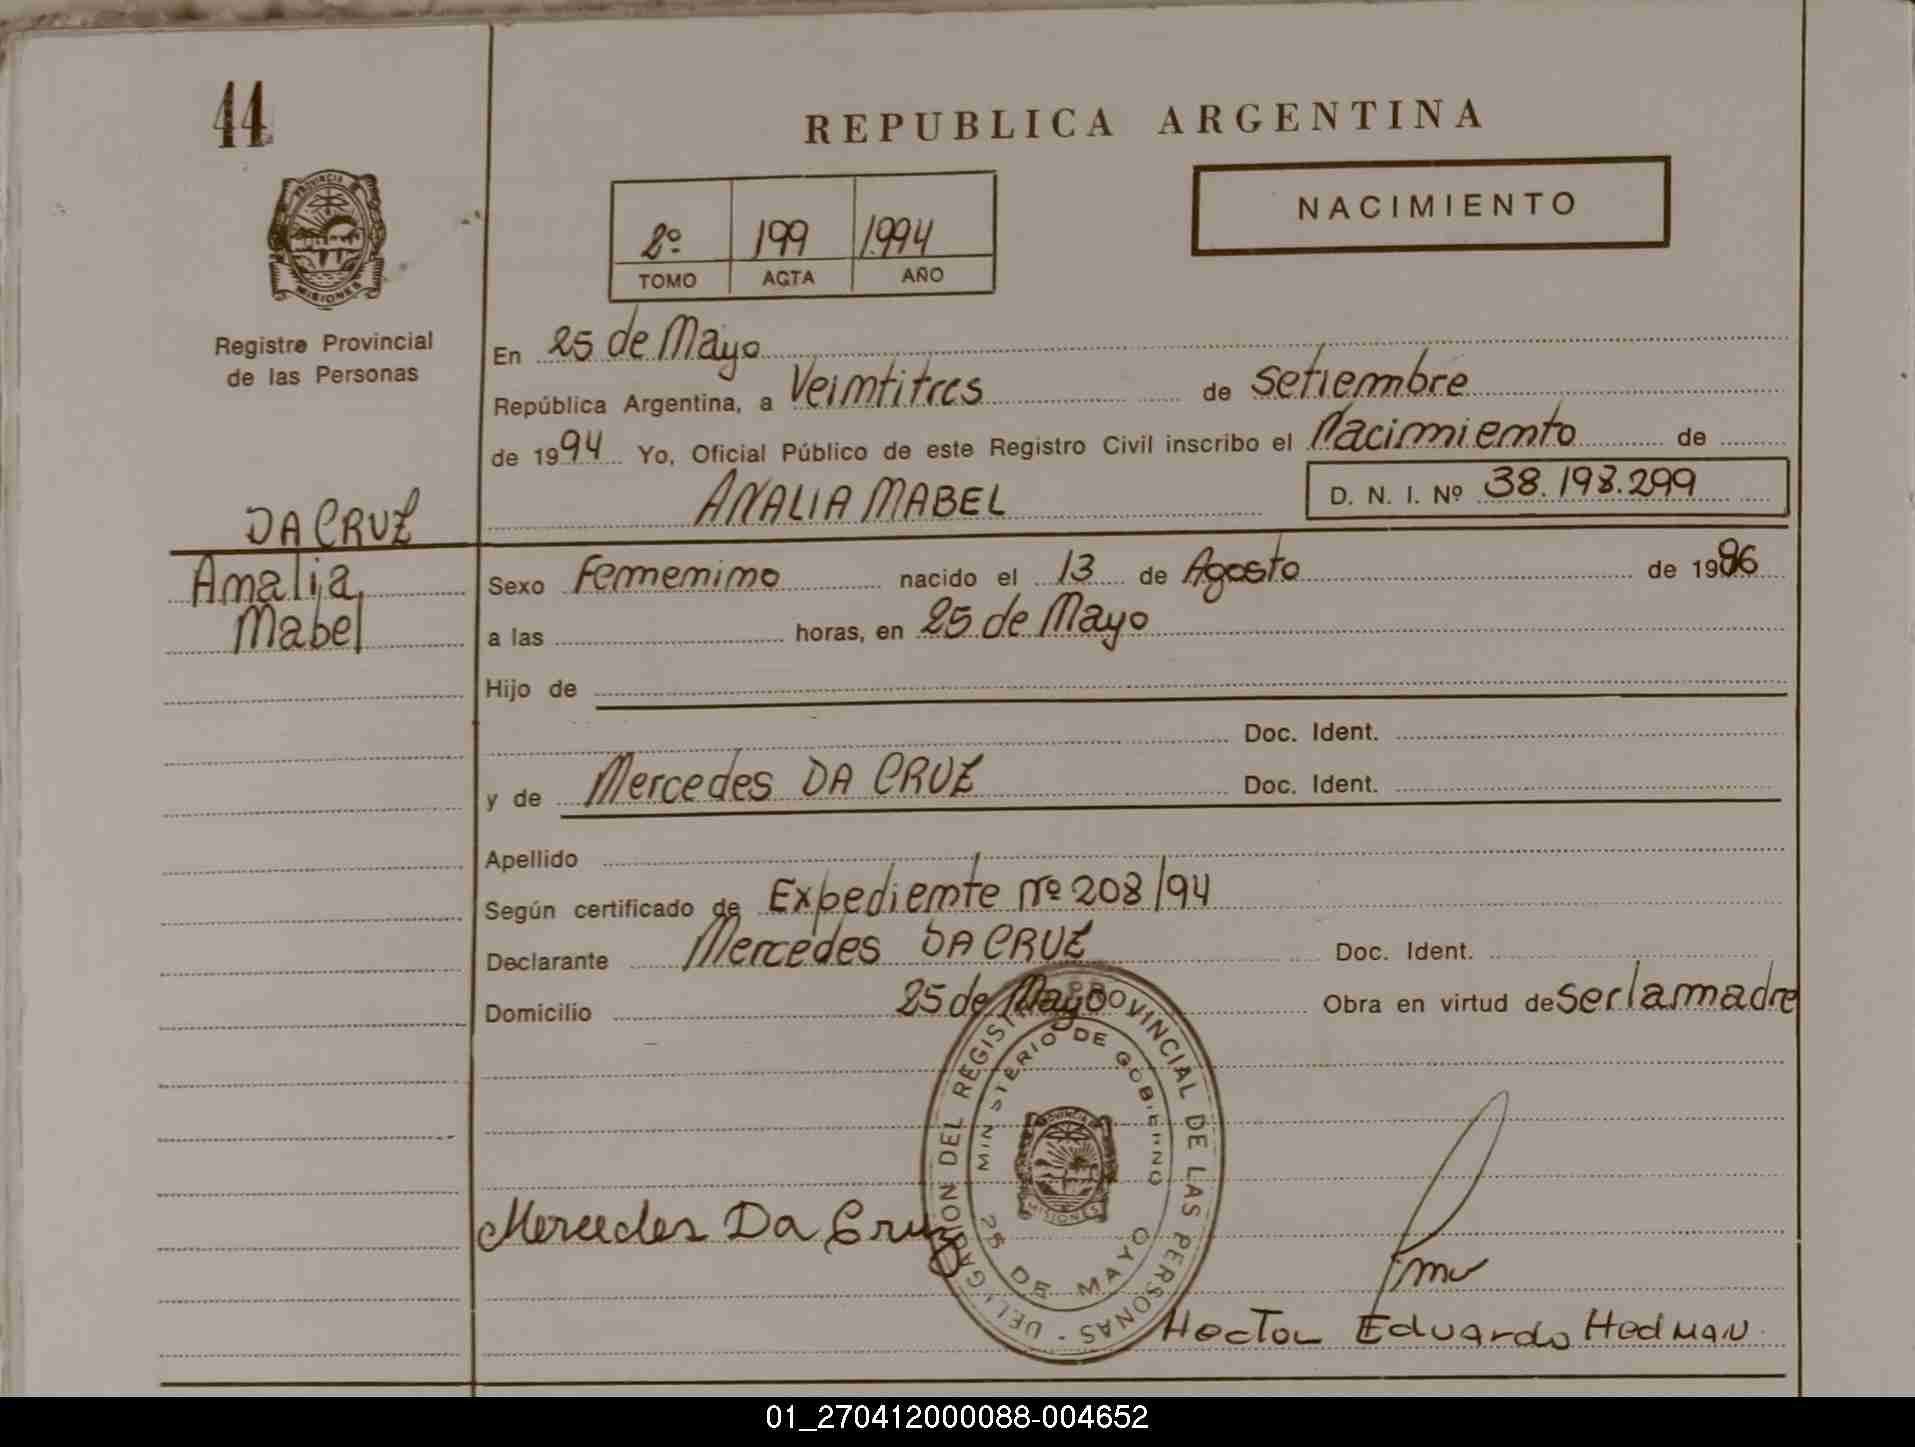 44
REPUBLICA ARGENTINA
NACIMIENTO
2º 199 1.994
TOMO ACTA AÑO
PROVINCIA
MISIONES
Registro Provincial
de las Personas
En 25 de Mayo
República Argentina, a Veintitres de Setiembre
de 1994 Yo, Oficial Público de este Registro Civil inscribo el Nacimiento de
ANALIA MABEL D. N. I. Nº 38.198.299
DA CRUZ
Analia
Mabel
Sexo Femenino nacido el 13 de Agosto de 1986
a las horas, en 25 de Mayo
Hijo de
Doc. Ident.
y de Mercedes DA CRUZ Doc. Ident.
Apellido
Según certificado de Expediente nº 208/94
Declarante Mercedes DA CRUZ Doc. Ident.
Domicilio 25 de Mayo Obra en virtud de ser la madre
DELEGACION DEL REGISTRO PROVINCIAL DE LAS PERSONAS -
MINISTERIO DE GOBIERNO
PROVINCIA
MISIONES
25 DE MAYO
Mercedes Da Cruz
Hector Eduardo Hedman
01_270412000088-004652